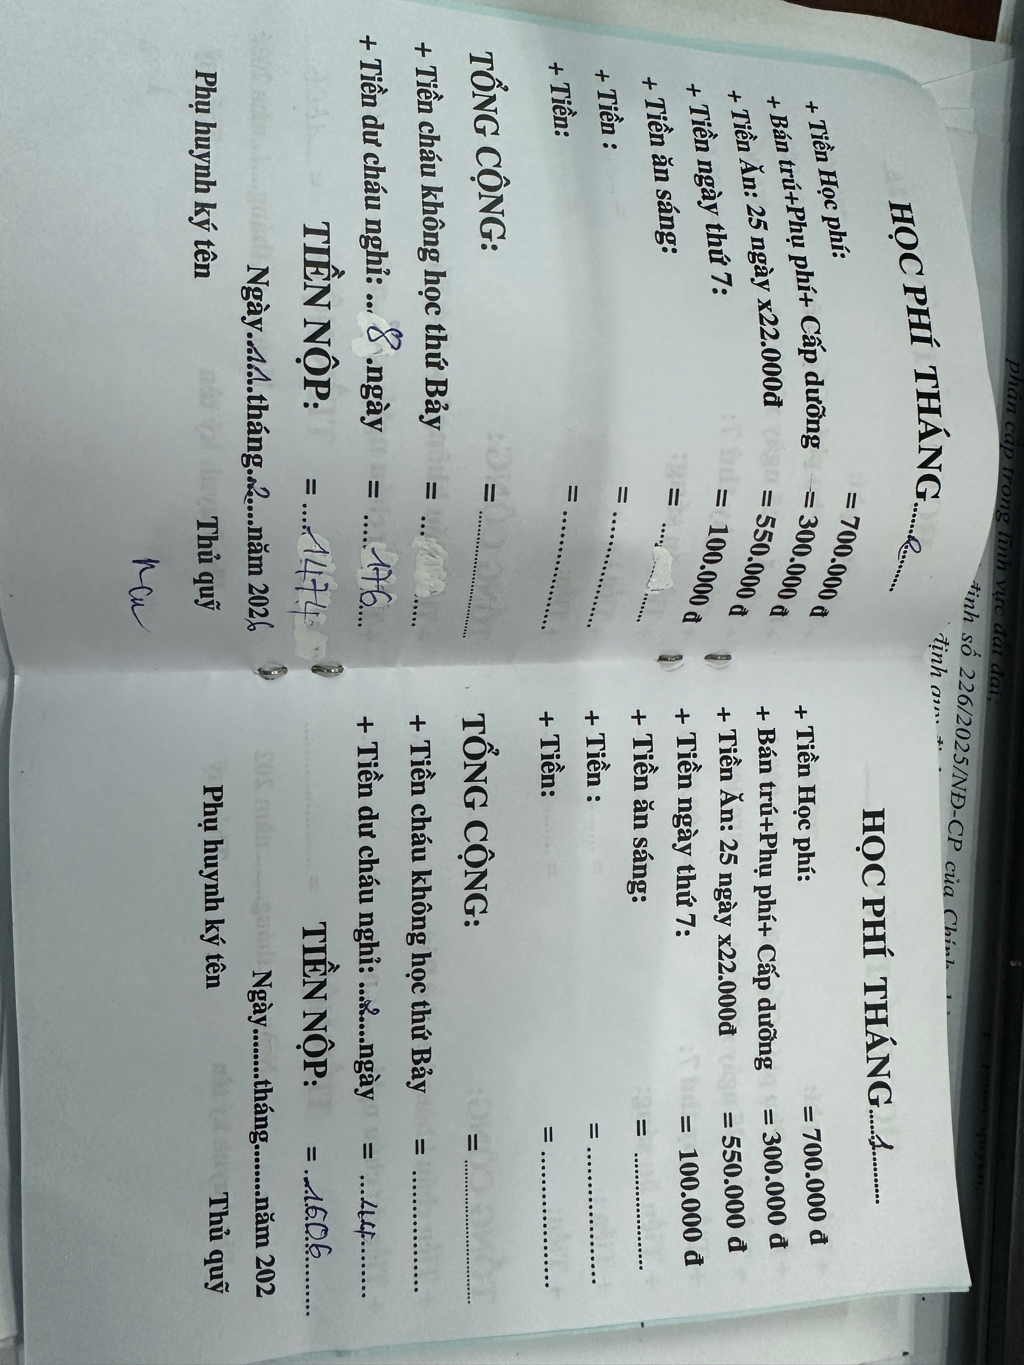 HỌC PHÍ THÁNG......2..........
+ Tiền Học phí: = 700.000 đ
+ Bán trú+Phụ phí+ Cấp dưỡng = 300.000 đ
+ Tiền Ăn: 25 ngày x22.000đ = 550.000 đ
+ Tiền ngày thứ 7: = 100.000 đ
+ Tiền ăn sáng: = ..............
+ Tiền : = ..................
+ Tiền: = ..................
TỔNG CỘNG: = ........................
+ Tiền cháu không học thứ Bảy = ..............
+ Tiền dư cháu nghỉ: ... 8 .ngày = .....176...
TIỀN NỘP: = .....1474.
Ngày..11..tháng..2....năm 2026
Phụ huynh ký tên Thủ quỹ
HỌC PHÍ THÁNG.....1...........
+ Tiền Học phí: = 700.000 đ
+ Bán trú+Phụ phí+ Cấp dưỡng = 300.000 đ
+ Tiền Ăn: 25 ngày x22.000đ = 550.000 đ
+ Tiền ngày thứ 7: = 100.000 đ
+ Tiền ăn sáng: = ....................
+ Tiền : = ....................
+ Tiền: = ....................
TỔNG CỘNG: = ........................
+ Tiền cháu không học thứ Bảy = ..................
+ Tiền dư cháu nghỉ: ...2....ngày = ....44........
TIỀN NỘP: = ..1606..........
Ngày.........tháng.........năm 202
Phụ huynh ký tên Thủ quỹ
phân cấp trong lĩnh vực đất đai;
định số 226/2025/NĐ-CP của